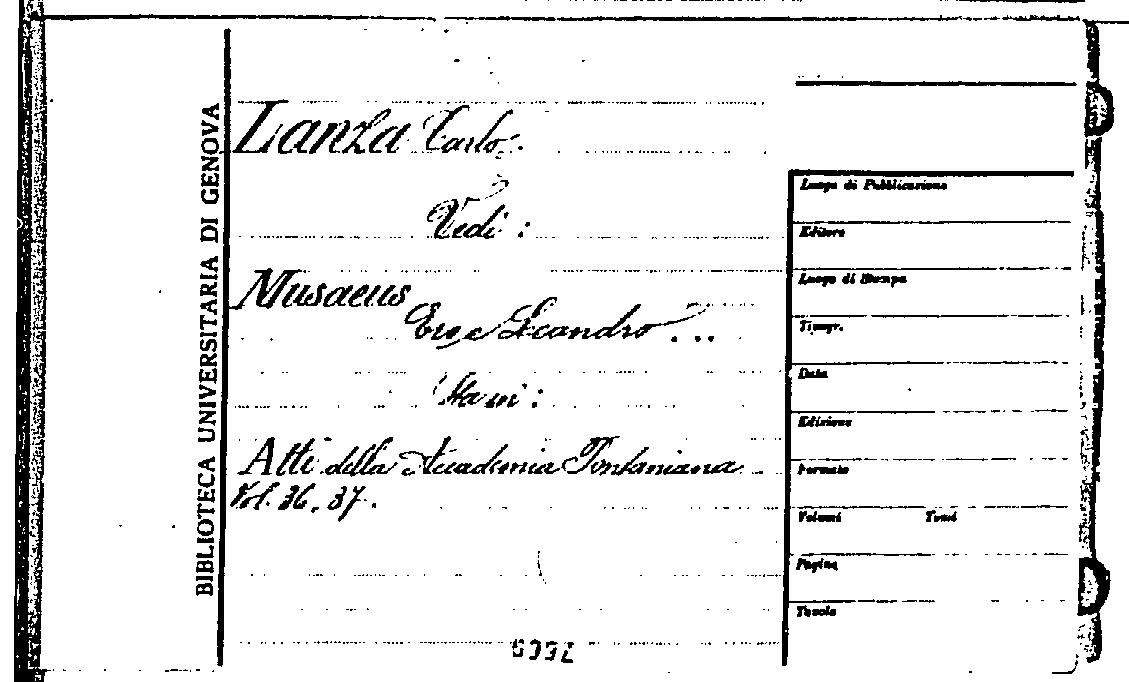 BIBLIOTECA UNIVERSITARIA DI GENOVA
Lanza Carlo.
Vedi :
Musaeus
Ero e Leandro ...
Sta in :
Atti della Accademia Pontaniana
Vol. 36. 37.
Luogo di Pubblicazione
Editore
Luogo di Stampa
Tipogr.
Data
Edizione
Formato
Volumi Tomi
Pagine
Tavole